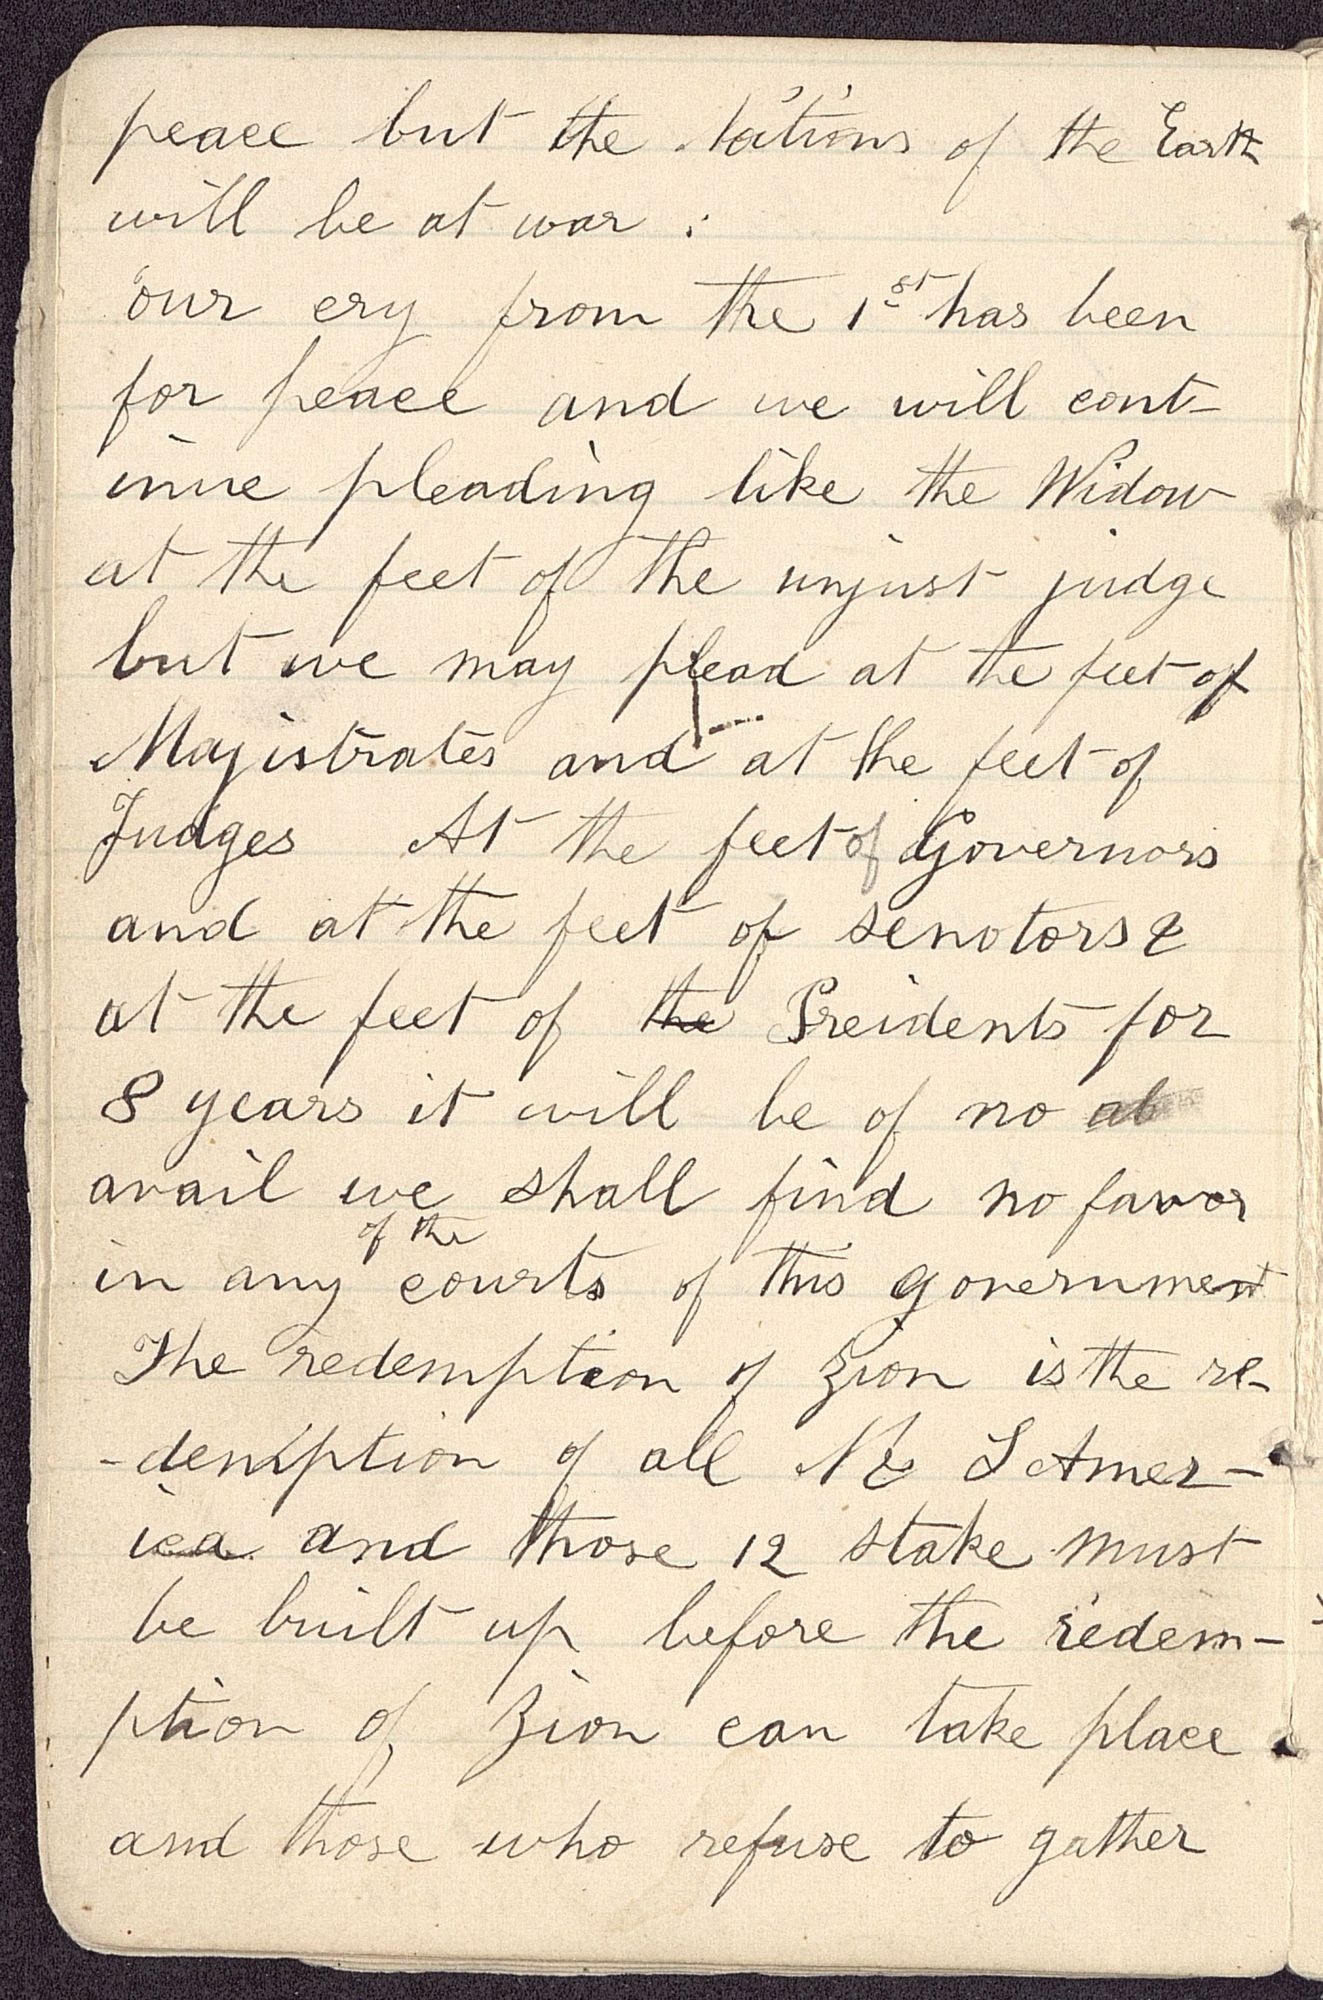 peace but the .tations of the Earth
will be at war :
our cry from the 1st has been
for peace and we will cont-
inue pleading like the Widow
at the feet of the unjust judge
but we may plead at the feet of
Majistrates and at the feet of
Judges At the feet of Governors
and at the feet of senotors &
at the feet of the Preidents for
8 years it will be of no ab
avail we shall find no favor
of the
in any courts of this government
The redemption of Zion is the re-
-demption of all N & S Amer-
ica and those 12 stake must
be built up before the redem-
ption of Zion can take place
and those who refuse to gather